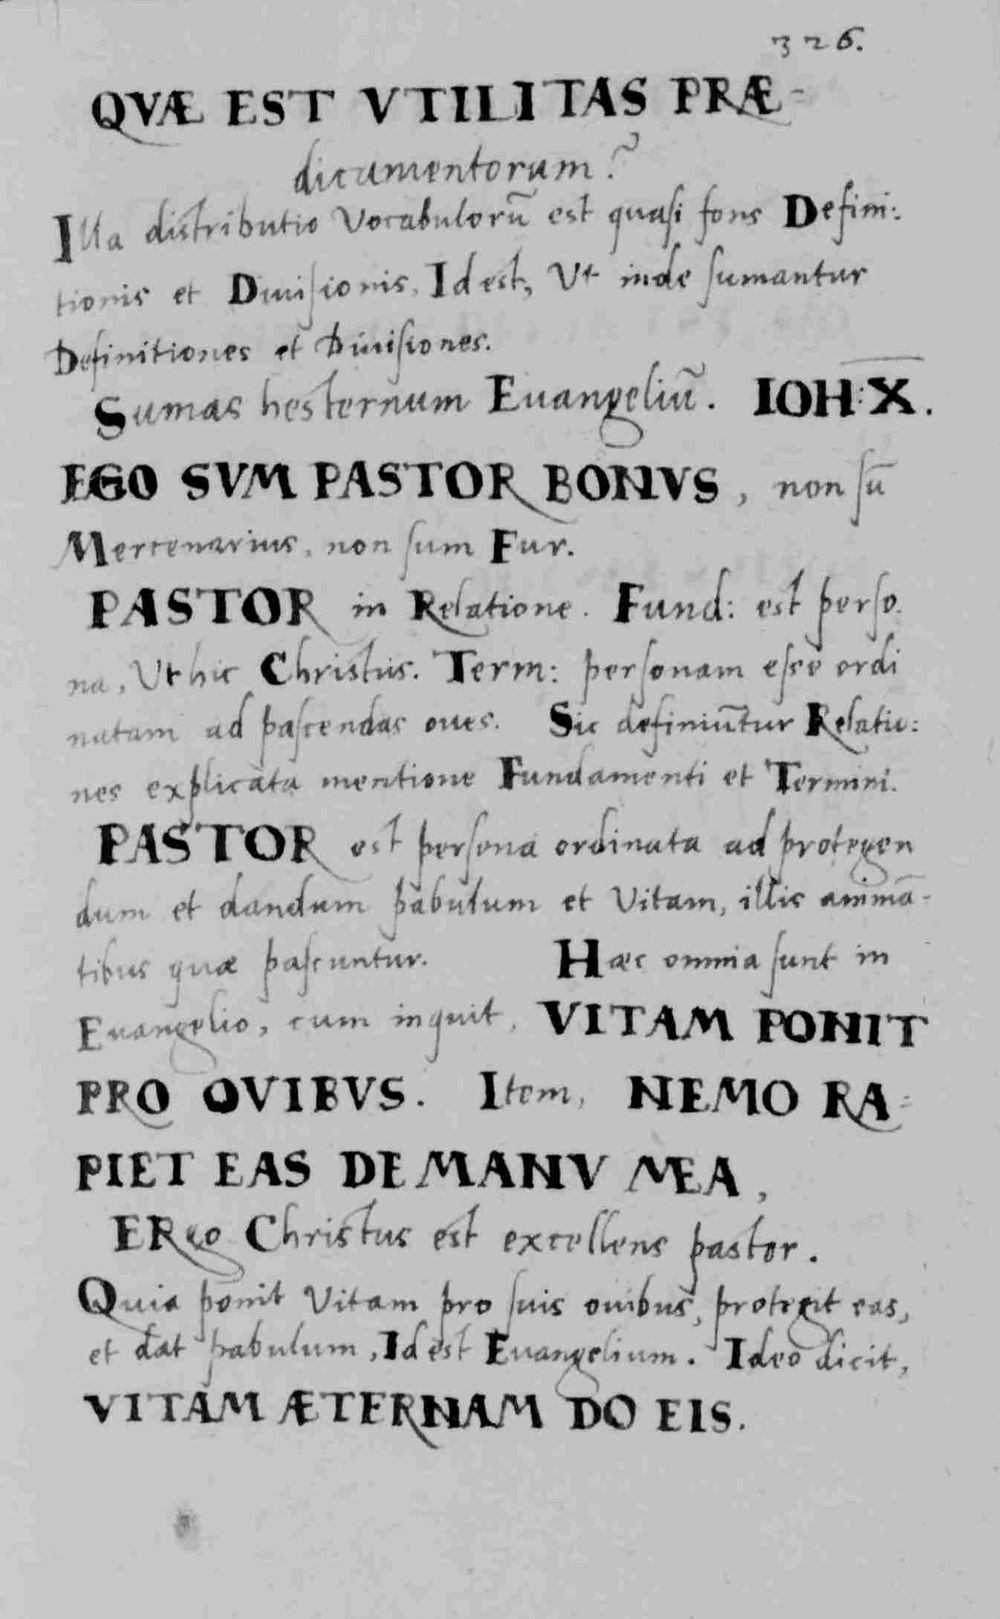 326.
QVÆ EST VTILITAS PRÆ-
dicamentorum?
Illa distributio Vocabulorū est quasi fons Defini:
tionis et Diuisionis. Id est, Vt inde sumantur
Definitiones et Diuisiones.
Sumas hesternum Euangeliū. IOH: X.
EGO SVM PASTOR BONVS, non sū
Mercenarius, non sum Fur.
PASTOR in Relatione. Fund: est perso.
na, Vt hic Christus. Term: personam esse ordi
natam ad pascendas oues. Sic definiūtur Relatio:
nes explicata mentione Fundamenti et Termini.
PASTOR est persona ordinata ad protegen
dum et dandum pabulum et Vitam, illis animā-
tibus quæ pascuntur. Hæc omnia sunt in
Euangelio, cum inquit, VITAM PONIT
PRO OVIBVS. Item, NEMO RA-
PIET EAS DE MANV MEA,
ERGo Christus est excellens pastor.
Quia ponit Vitam pro suis ouibus, protegit eas,
et dat pabulum, Id est Euangelium. Ideo dicit,
VITAM ÆTERNAM DO EIS.